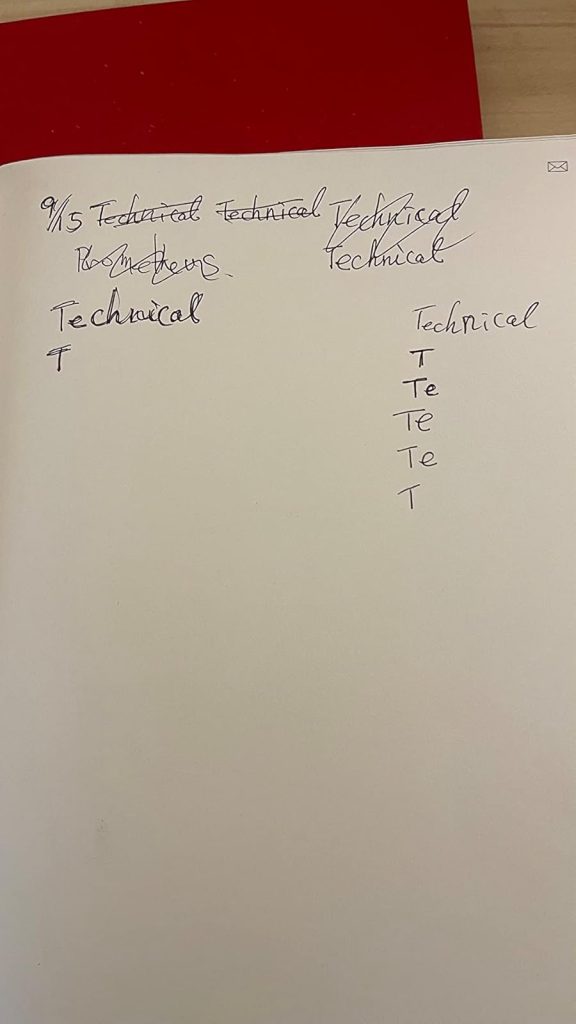 9/15 Technical Technical Technical
Prometheus. Technical
Technical Technical
T T
Te
Te
Te
T